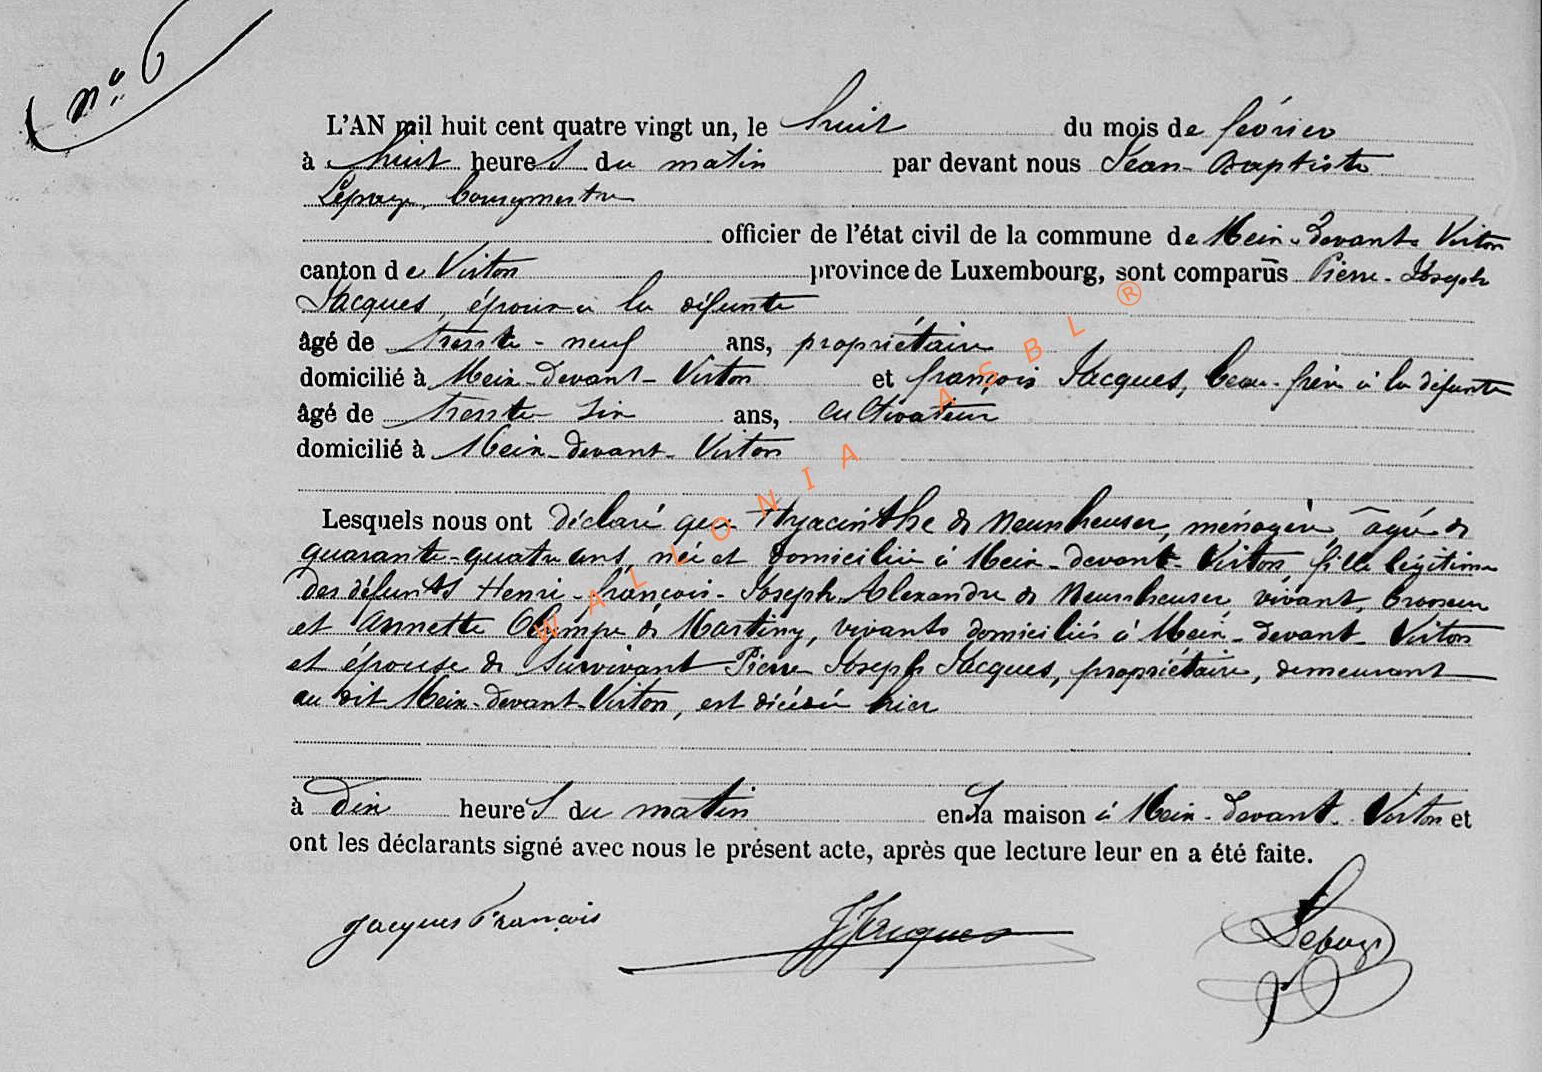 n° 6
L'AN mil huit cent quatre vingt un, le huit du mois de février
à huit heures du matin par devant nous Jean-Baptiste
Lepage, bourgmestre
officier de l'état civil de la commune de Meix-devant-Virton
canton de Virton province de Luxembourg, sont comparus Pierre-Joseph
Jacques, époux à la défunte
âgé de trente-neuf ans, propriétaire
domicilié à Meix-devant-Virton et françois Jacques, beau-frère à la défunte
âgé de trente six ans, cultivateur
domicilié à Meix-devant-Virton
Lesquels nous ont déclaré que Hyacinthe de Neunheuser, ménagère, âgée de
quarante-quatre ans, née et domiciliée à Meix-devant-Virton, fille légitime
des défunts Henri-françois-Joseph-Alexandre de Neunheuser, vivant, brasseur
et Annette Olympe de Martiny, vivants domiciliés à Meix-devant-Virton
et épouse de survivant Pierre Joseph Jacques, propriétaire, demeurant
au dit Meix-devant-Virton, est décédée hier
à dix heures du matin en sa maison à Meix-devant-Virton et
ont les déclarants signé avec nous le présent acte, après que lecture leur en a été faite.
Jacques François
JJacques
Lepage
WALLONIA ASBL ®